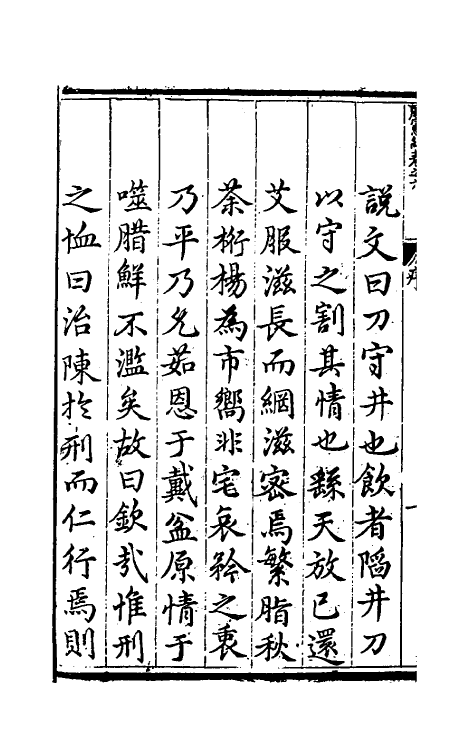 說文曰刀守井也飲者陷井刀
以守之割其情也繇天放已還
艾服滋長而網滋密焉繁脂秋
荼桁楊為市嚮非宅哀矜之衷
乃平乃允茹恩于戴盆原情于
噬腊鮮不濫矣故曰欽㢤惟刑
之恤曰治陳扵刑而仁行焉則